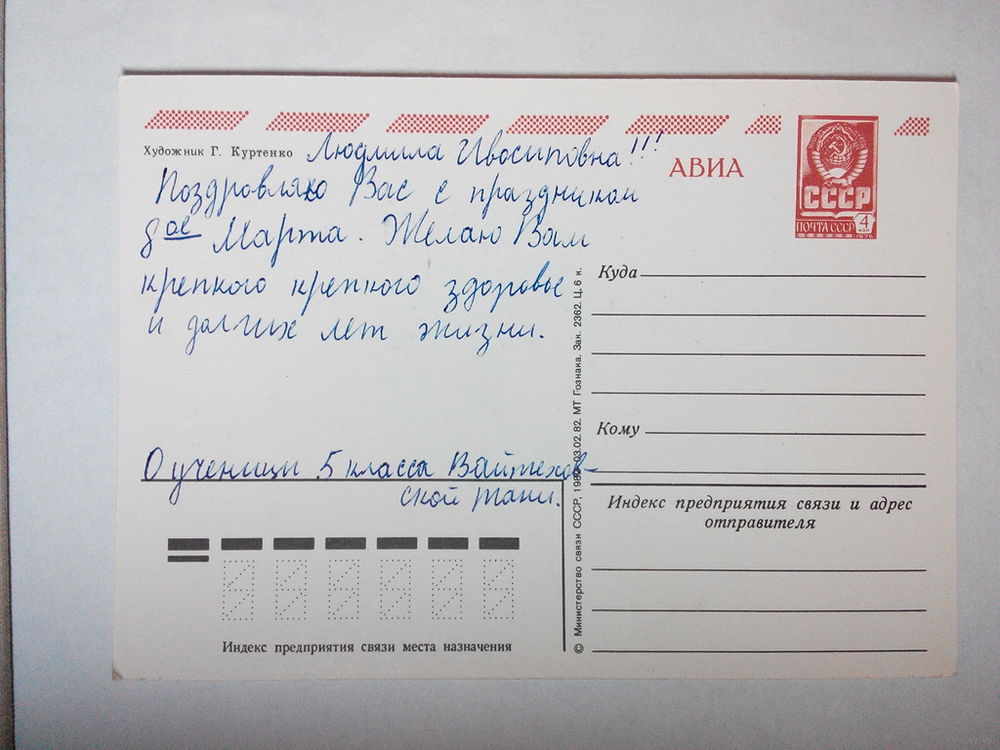 Художник Г. Куртенко
Людмила Ивосиповна!!!
Поздровляю Вас с праздником
8ое Марта. Желаю Вам
крепкого крепкого здоровье
и долгих лет жизни.
О ученицы 5 класса Вайтехов-
ской Тани.
АВИА
СССР
ПОЧТА СССР 4 КОП
1976
Куда
Кому
Индекс предприятия связи и адрес
отправителя
© Министерство связи СССР, 03.02.82. МТ Гознака. Зак. 2362. Ц. 6 к.
Индекс предприятия связи места назначения